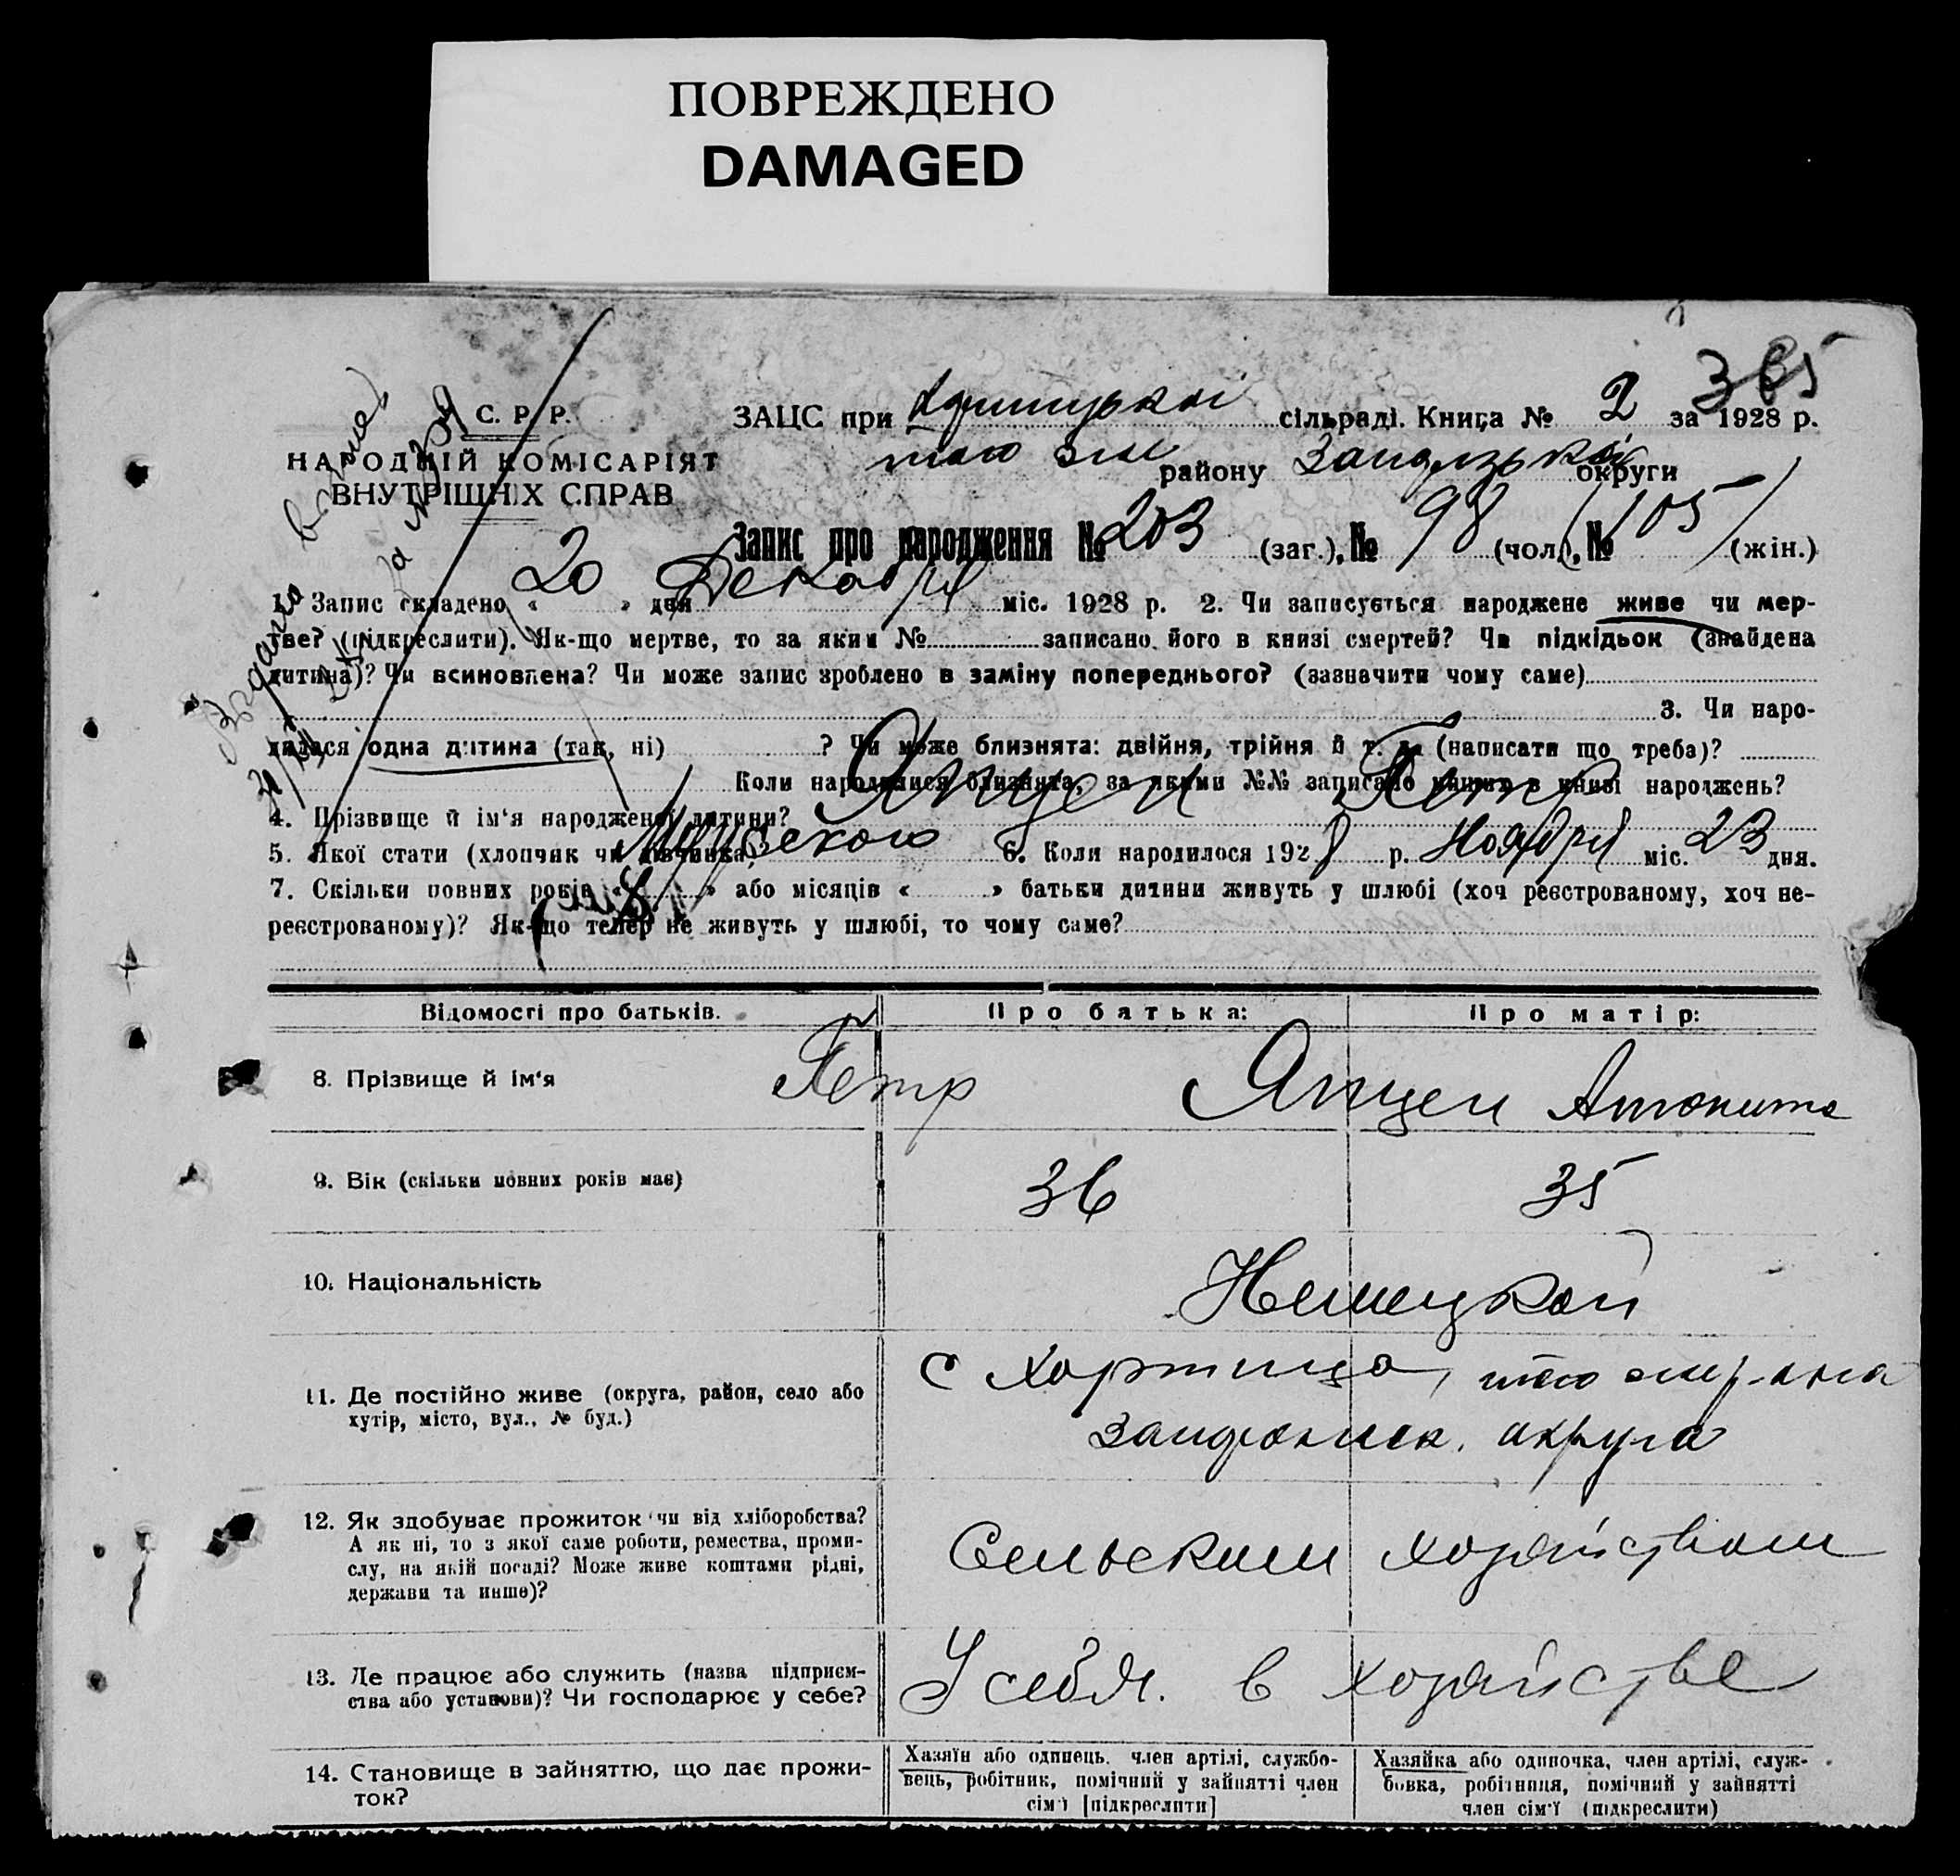 ПОВРЕЖДЕНО
DAMAGED
365
С. Р. Р.
НАРОДНІЙ КОМІСАРІЯТ
ВНУТРІШНІХ СПРАВ
ЗАЦС при сільраді. Книга № 2 за 1928 р.
того же району округи
Запис про народження № 203 (заг.), № 98 (чол.), № 105 (жін.)
1. Запис складено « 20 » дня Декабря міс. 1928 р. 2. Чи записується народжене живе чи мер-
тве? (підкреслити). Як-що мертве, то за яким № записано його в книзі смертей? Чи підкідьок (знайдена
дитина)? Чи всиновлена? Чи може запис зроблено в заміну попереднього? (зазначити чому саме)
3. Чи наро-
дилася одна дитина (так, ні) ? Чи може близнята: двійня, трійня й т. д. (написати що треба)?
Коли народилися близнята, за якими №№ записано инших в книзі народжень?
4. Прізвище й ім'я народженої дитини? Янцен Петр
5. Якої стати (хлопчик чи дівчинка) Мужского 6. Коли народилося 1928 р. Ноября міс. 23 дня.
7. Скільки повних років « 8 » або місяців « » батьки дитини живуть у шлюбі (хоч реєстрованому, хоч не-
реєстрованому)? Як-що тепер не живуть у шлюбі, то чому саме?
Відомості про батьків. Про батька: Про матір:
8. Прізвище й ім'я Петр Янцен
9. Вік (скільки повних років має) 36 35
10. Національність Немецкой
11. Де постійно живе (округа, район, село або
хутір, місто, вул., № буд.)
с Хортица, того же р-она
округа
12. Як здобуває прожиток чи від хліборобства?
А як ні, то з якої саме роботи, ремества, проми-
слу, на якій посаді? Може живе коштами рідні,
держави та инше)?
Сельским хозяйством
13. Де працює або служить (назва підприєм-
ства або установи)? Чи господарює у себе?
У себя в хозяйстве
14. Становище в зайняттю, що дає прожи-
ток?
Хазяїн або одинець, член артілі, службо-
вець, робітник, помічний у зайнятті член
сім'ї [підкреслити]
Хазяйка або одиночка, член артілі, служ-
бовка, робітниця, помічний у зайнятті
член сім'ї (підкреслити)